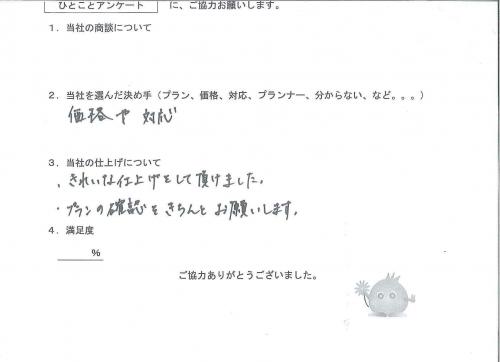 ひとことアンケート に、ご協力お願いします。
1．当社の商談について
2．当社を選んだ決め手（プラン、価格、対応、プランナー、分からない、など。。。）
価格や対応
3．当社の仕上げについて
・きれいな仕上げをして頂けました。
・プランの確認をきちんとお願いします。
4．満足度
%
ご協力ありがとうございました。